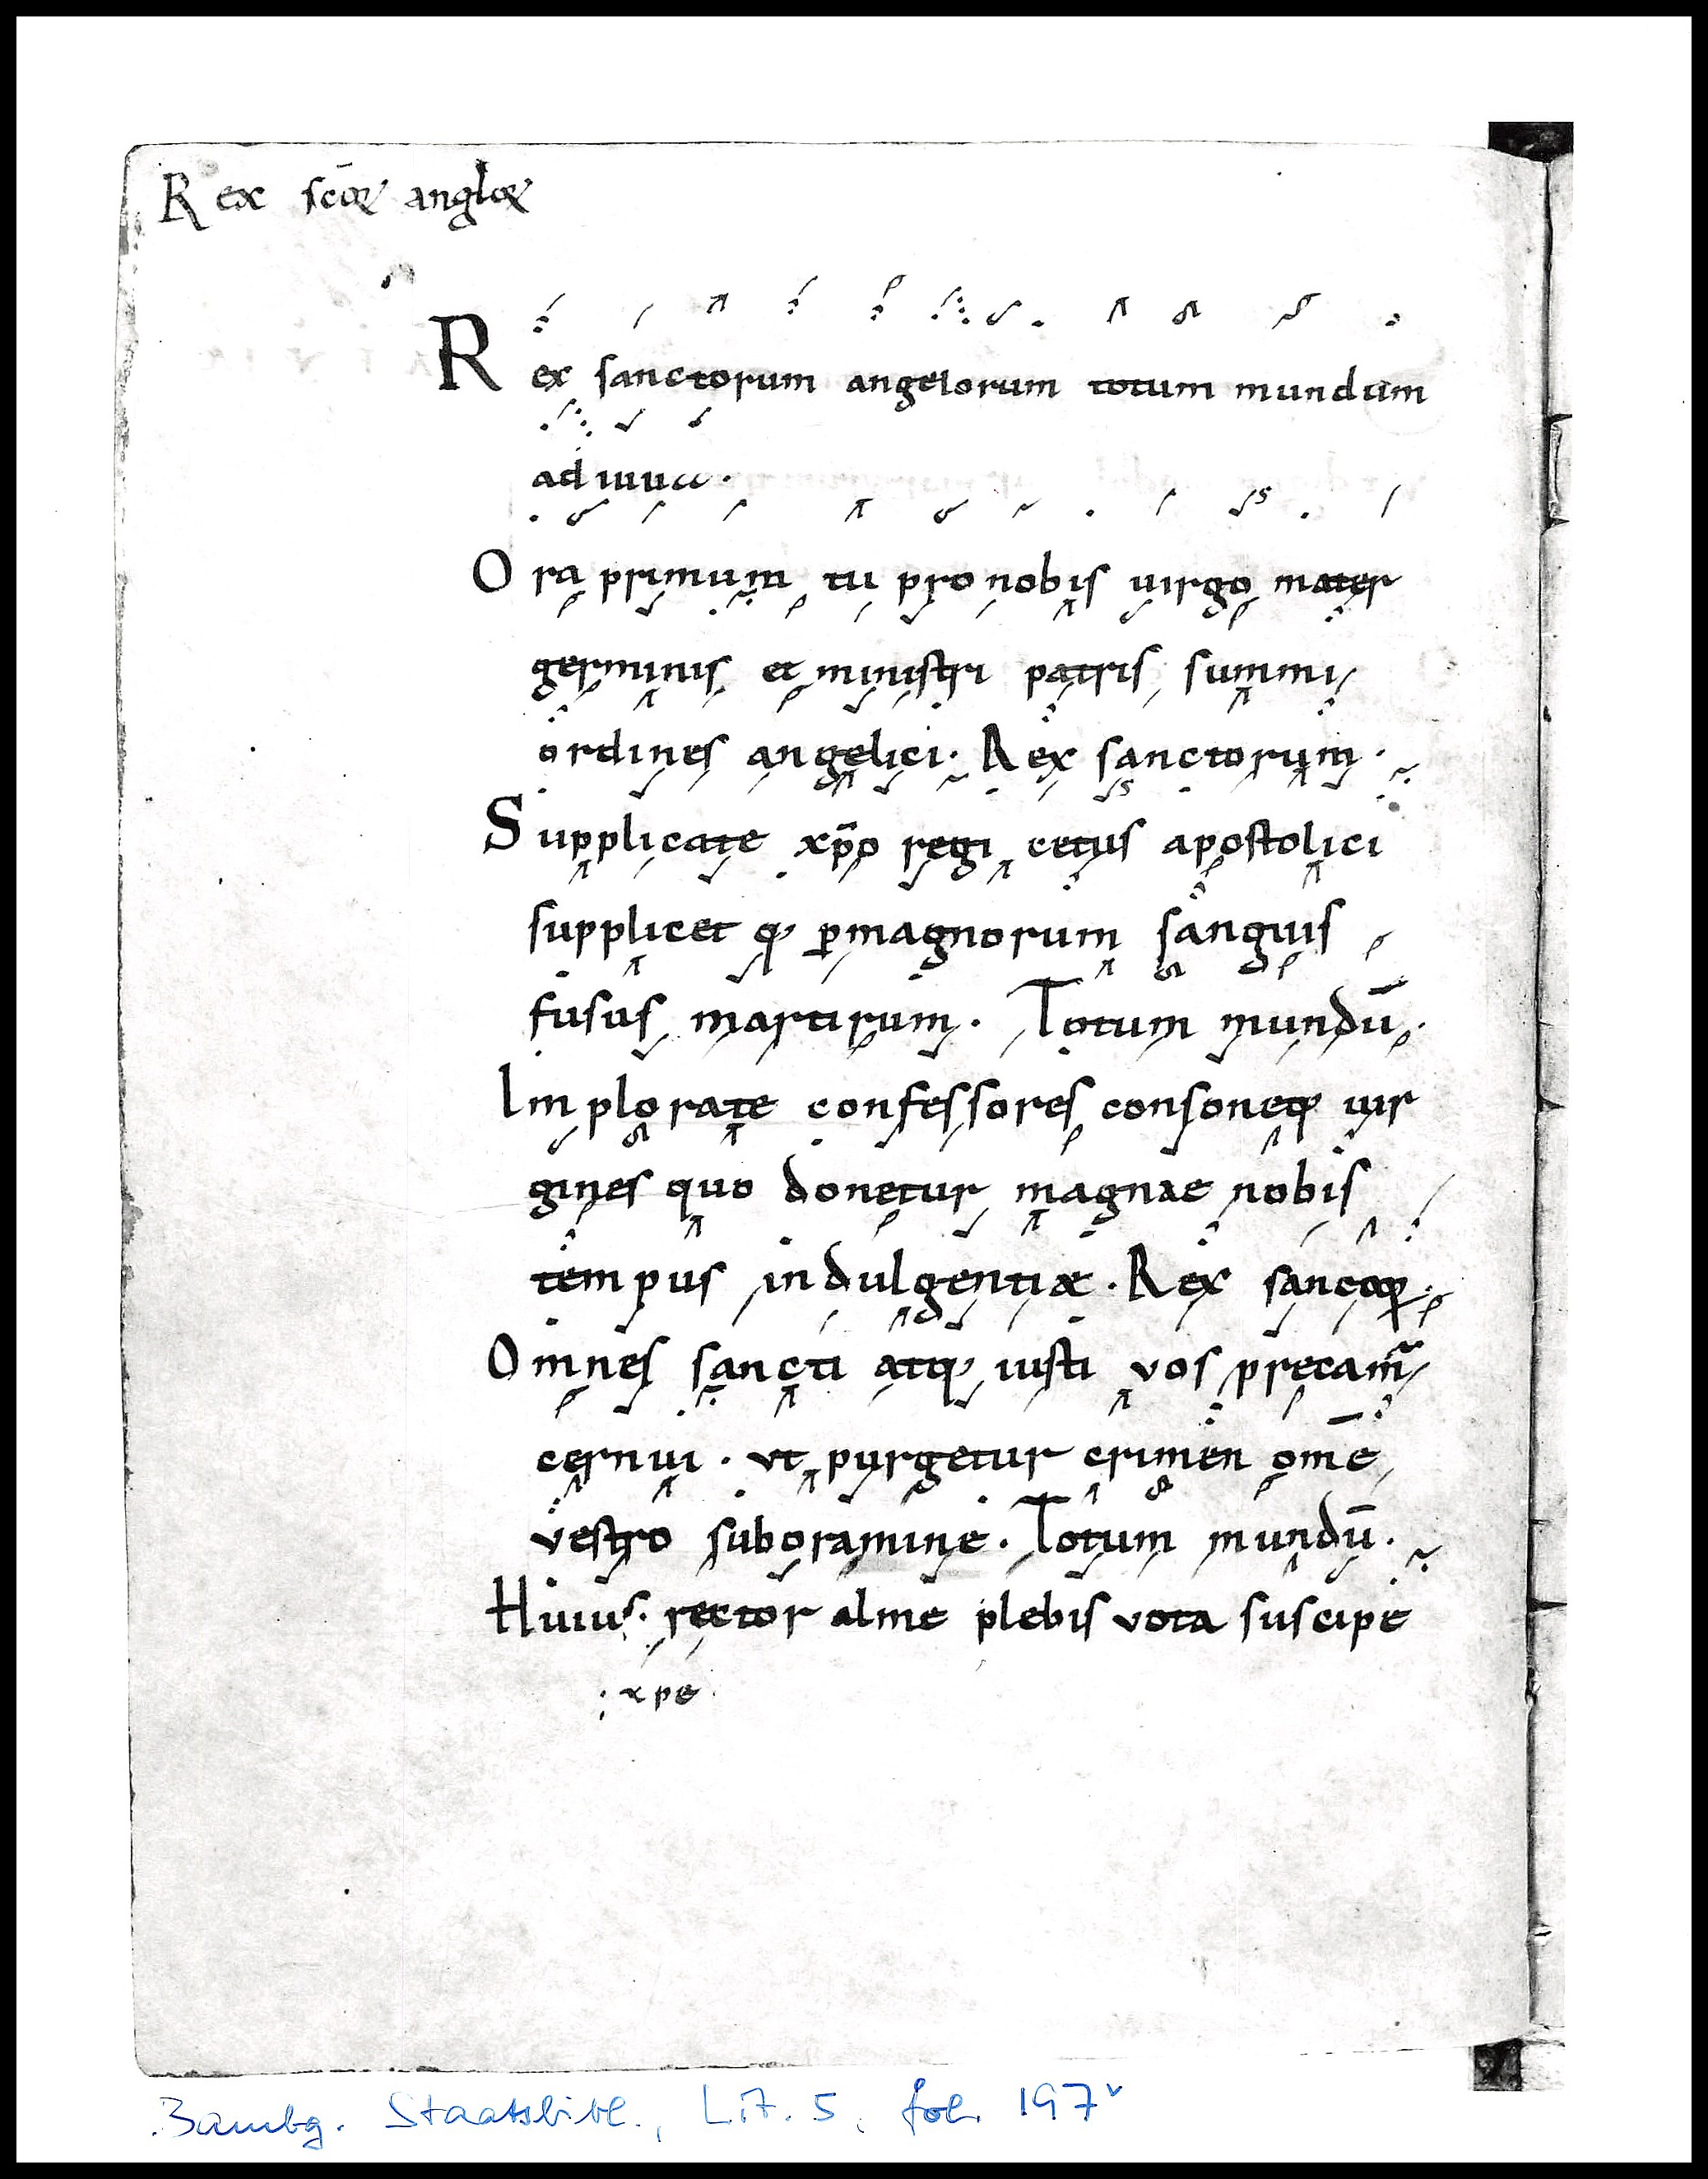 Rex scōꝝ angloꝝ
Rex sanctorum angelorum totum mundum
adiuua.
Ora primum tu pro nobis uirgo mater
germinis et ministri patris summi
ordines angelici. Rex sanctorum.
Supplicate xp̄o regi cetus apostolici
supplicet q; ꝑmagnorum sanguis
fusus martirum. Totum mundū.
Implorate confessores consoneq; uir
gines quo donetur magnae nobis
tempus indulgentiæ. Rex sanctoꝝ.
Omnes sancti atq; iusti vos precam̄
cernui. vt purgetur crimen om̄e
vestro suboramine. Totum mundū.
Huius rector alme plebis vota suscipe
xpe.
Bambg. Staatsbibl., Lit. 5, fol. 197v